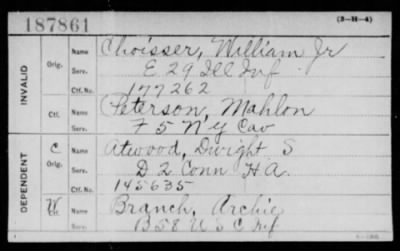 187861
(3-H-4)
INVALID
Orig. Name Choisser, William Jr
Serv. E 29 Ill Inf
Ctf. No. 177262
Ctf. Name Peterson, Mahlon
Serv. F 5 N Y Cav
DEPENDENT
C Orig. Name Atwood, Dwight S
Serv. D 2 Conn H A.
Ctf. No. 145635
W Ctf. Name Branch, Archie
Serv. B 58 U S C Inf